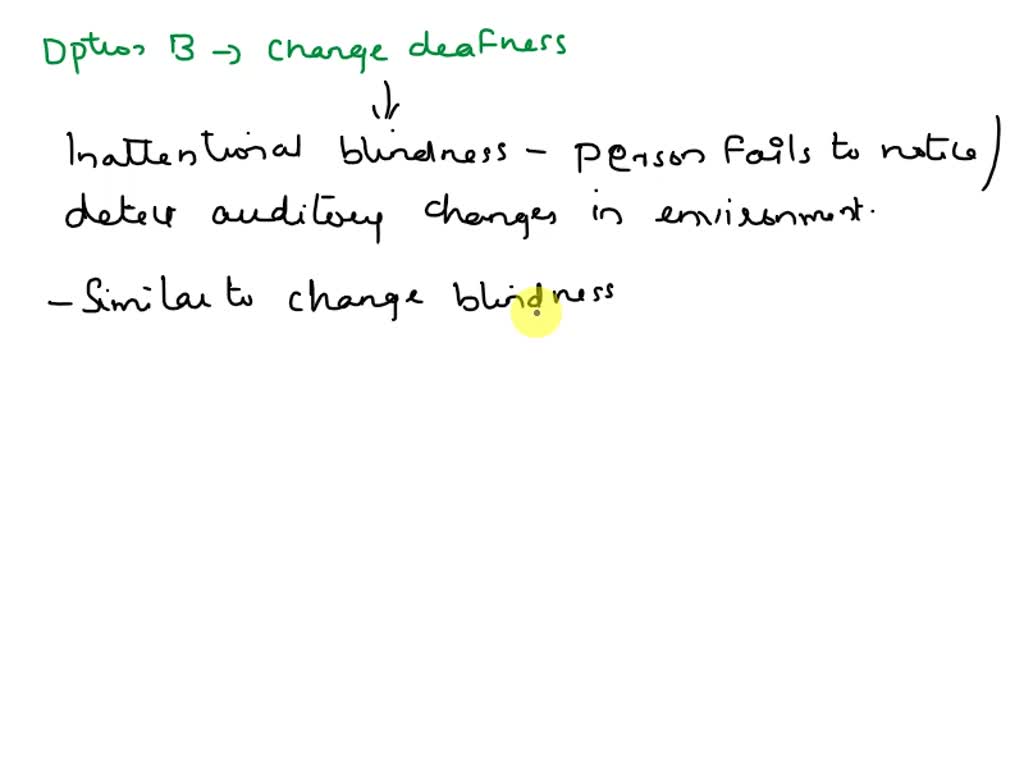 Option B → change deafness
Inattentional blindness - person fails to notice/
detect auditory changes in environment.
- Similar to change blindness